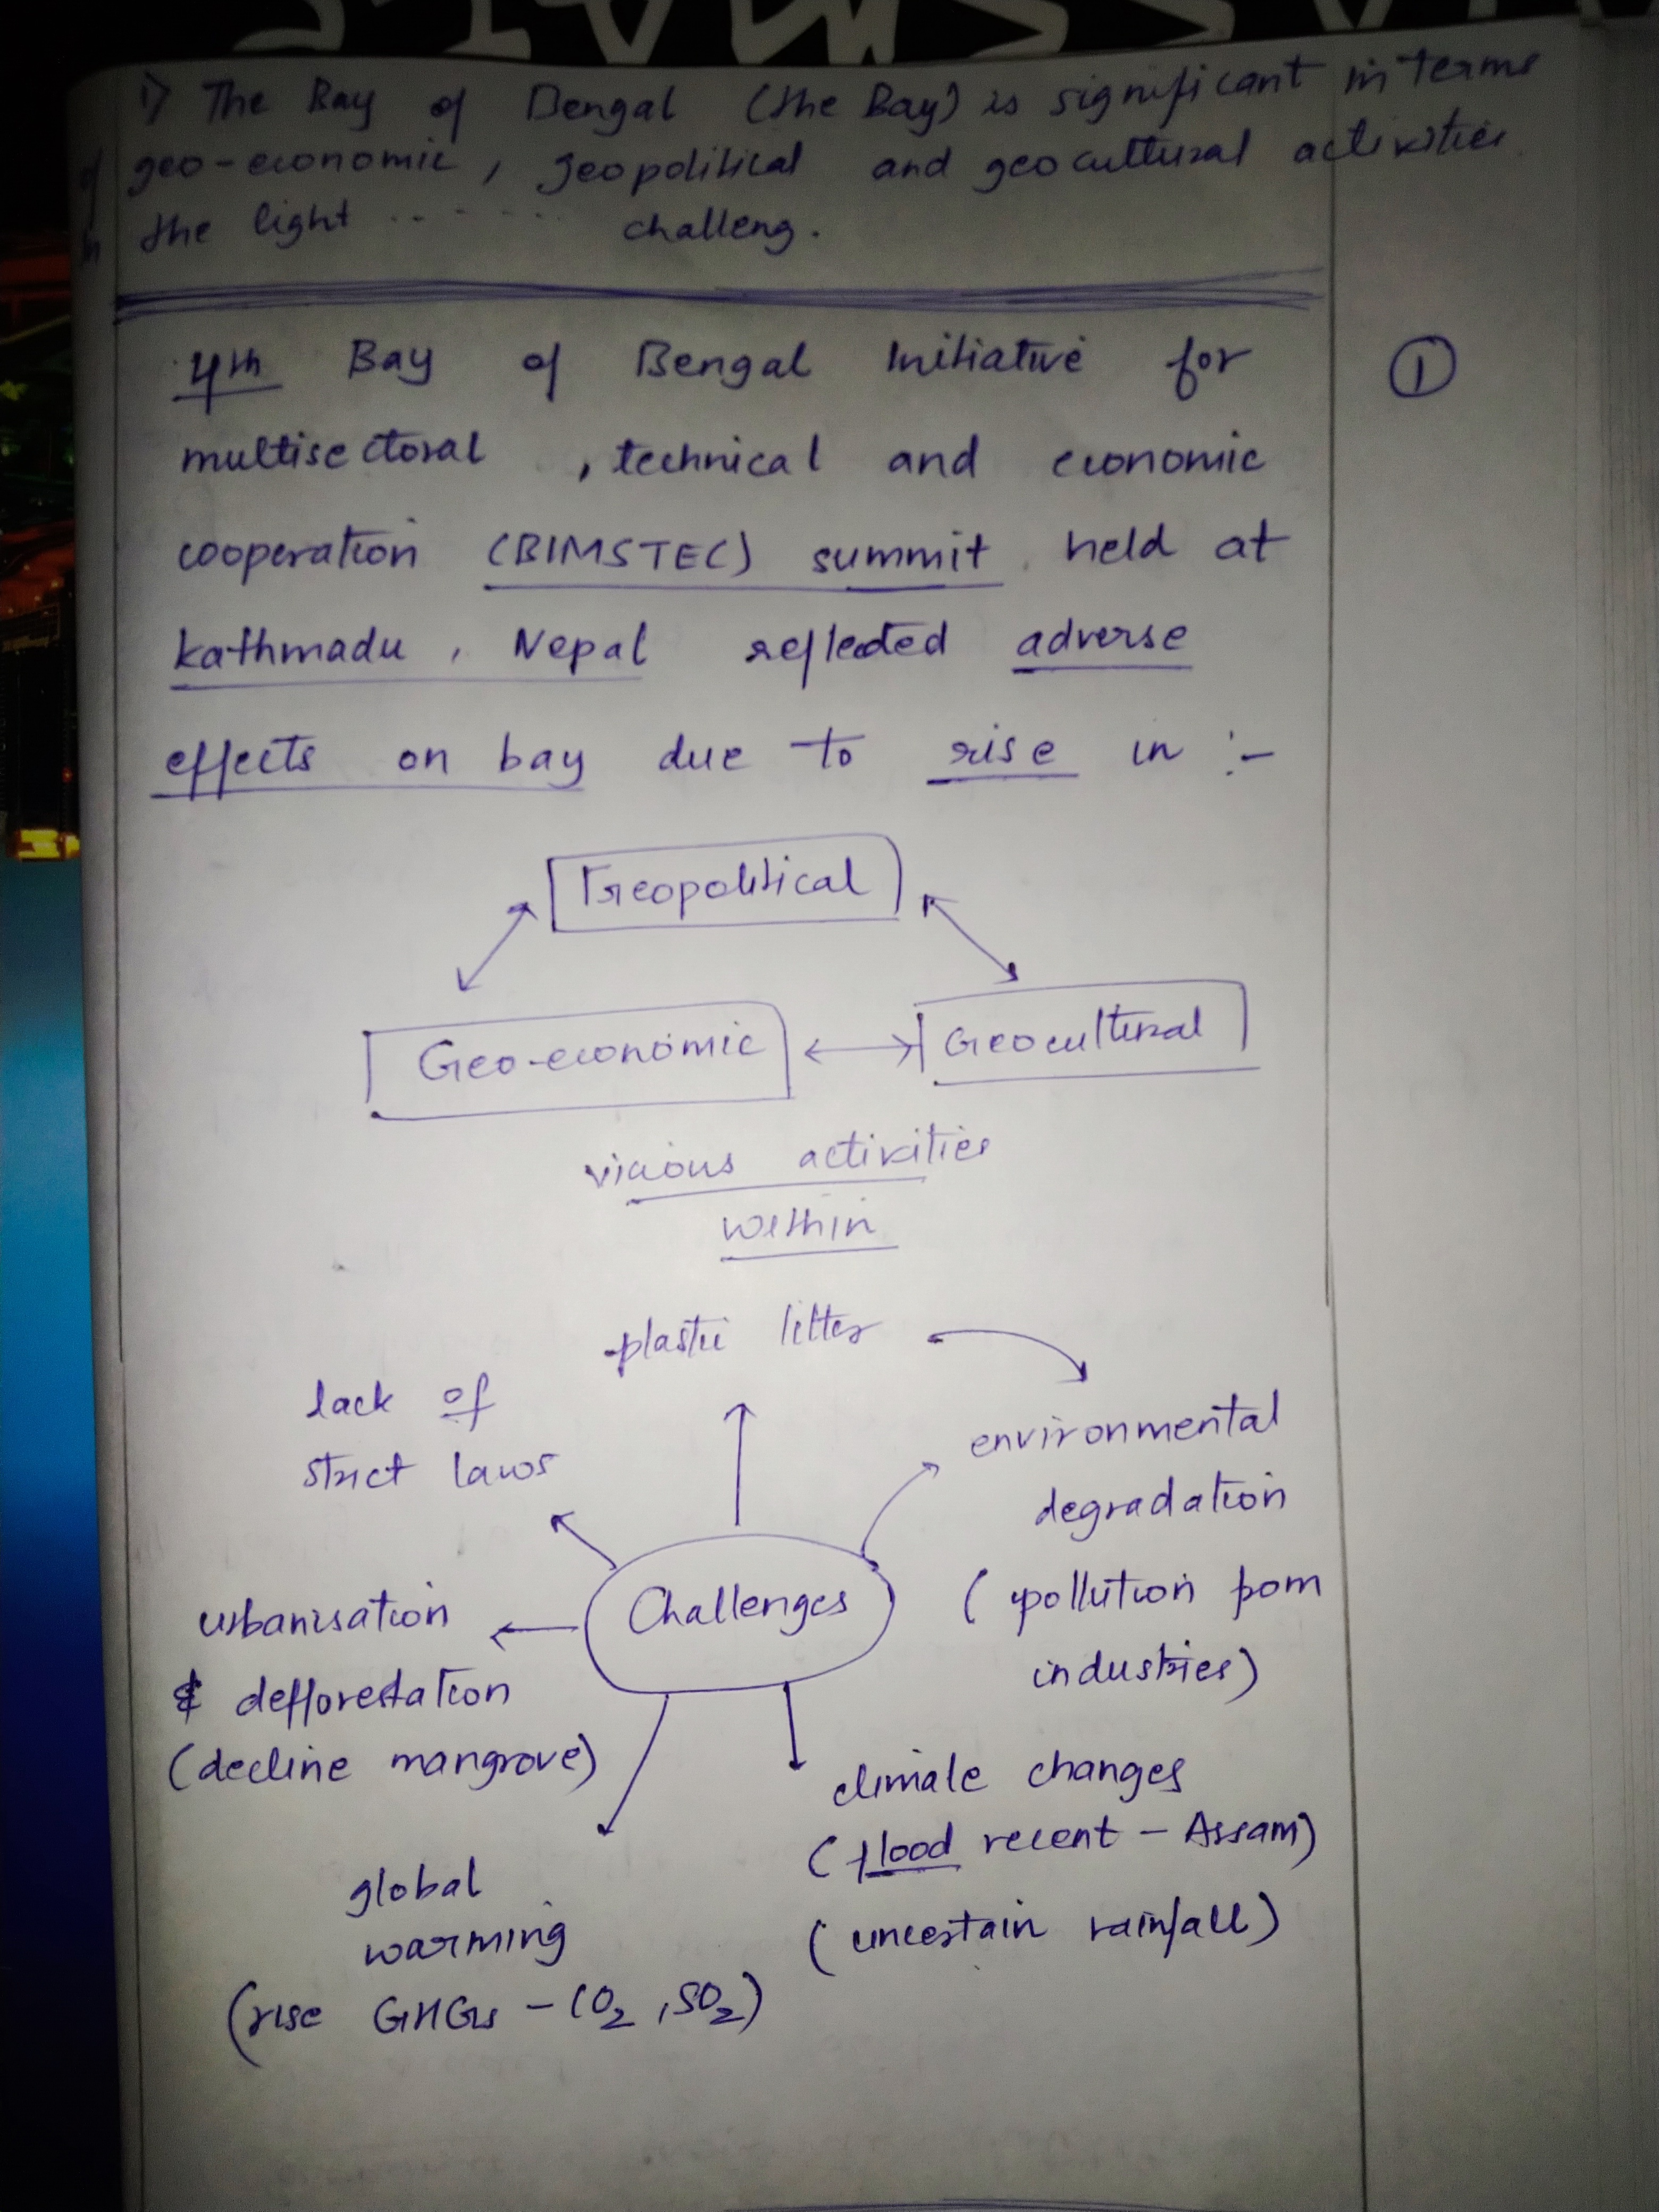 1) The Bay of Bengal (the Bay) is significant in terms
of geo-economic, geopolitical and geocultural activities.
In the light ........ challeng.
4th Bay of Bengal Initiative for
①
multisectoral, technical and economic
cooperation (BIMSTEC) summit held at
kathmadu, Nepal reflected adverse
effects on bay due to rise in :-
Geopolitical
Geo-economic
Geocultural
vicious activities
within
plastic litter
lack of
strict laws
environmental
degradation
(pollution from
industries)
Challenges
urbanisation
& defforestation
(decline mangrove)
climate changes
(flood recent - Assam)
(uncertain rainfall)
global
warming
(rise GHGs - CO₂, SO₂)